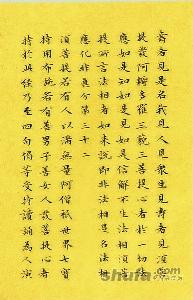 壽者見是名我見人見眾生見壽者見須菩
提發阿耨多羅三藐三菩提心者於一切法
應如是知如是見如是信解不生法相須菩
提所言法相者如來說即非法相是名法相
應化非真分第三十二
須菩提若有人以滿無量阿僧祇世界七寶
持用布施若有善男子善女人發菩提心者
持於此經乃至四句偈等受持讀誦為人演